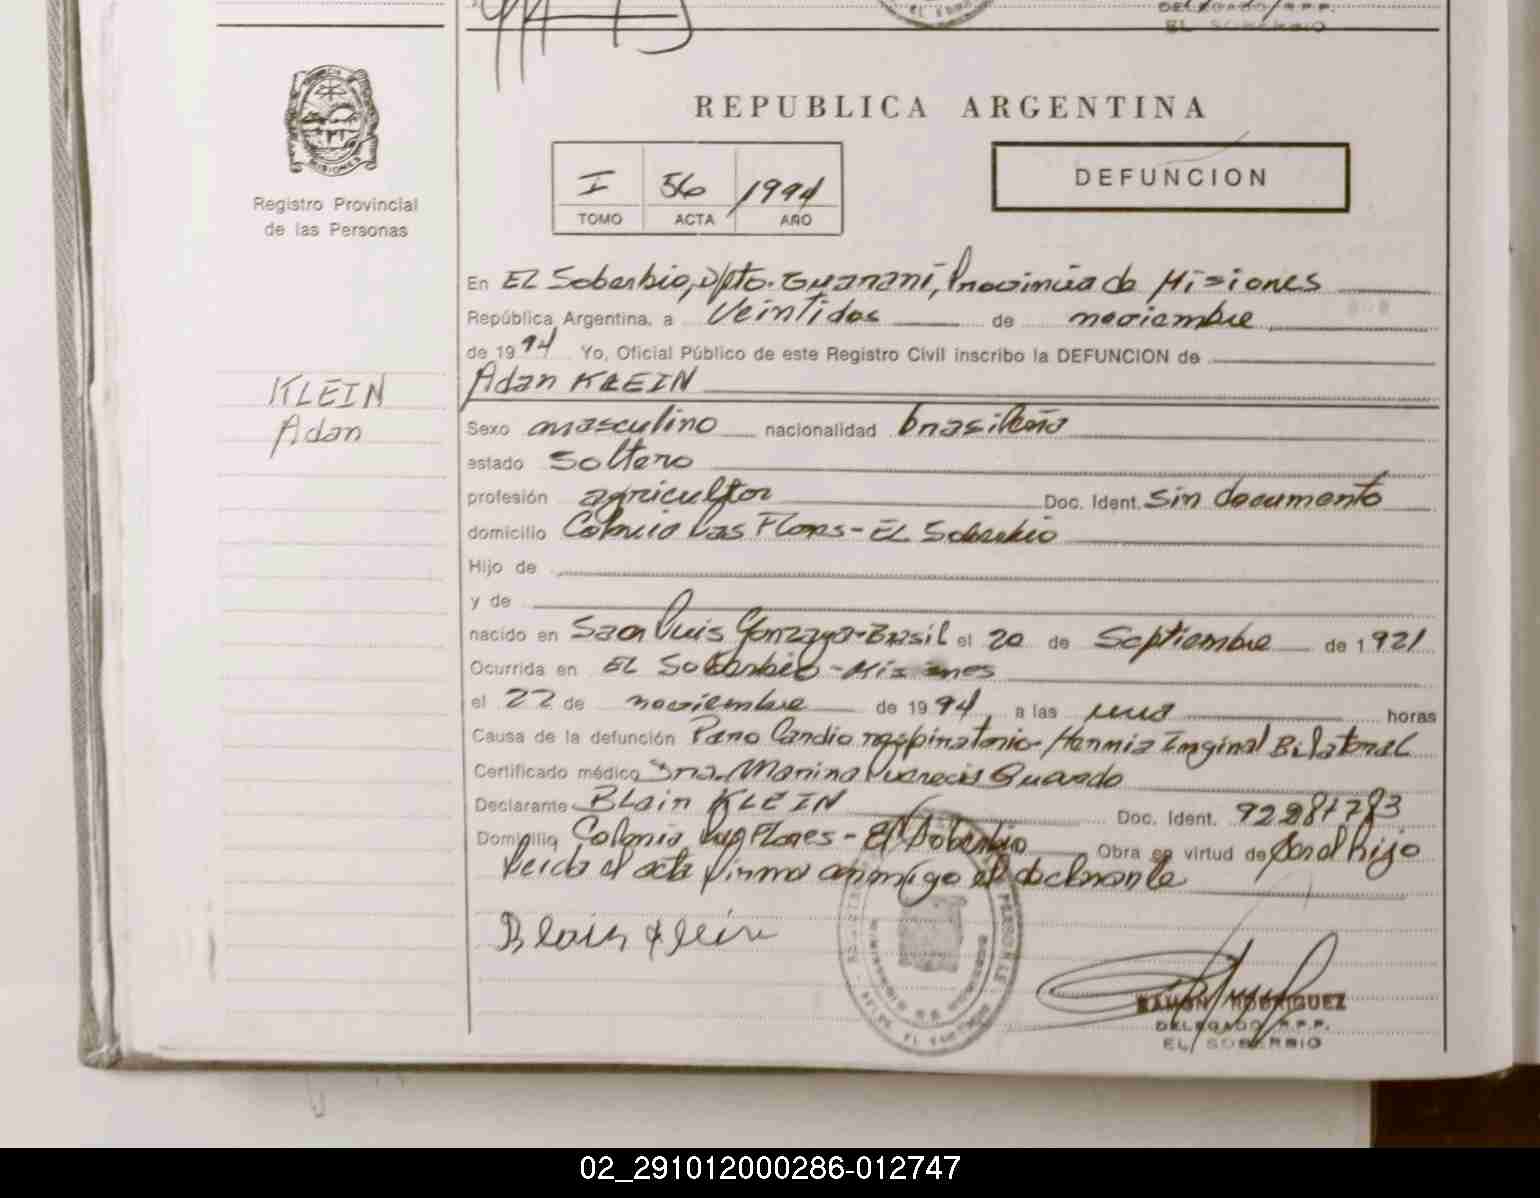 DELEGADO R.P.P.
EL SOBERBIO
REPUBLICA ARGENTINA
I 56 1994
TOMO ACTA AÑO
DEFUNCION
MISIONES
Registro Provincial
de las Personas
KLEIN
Adan
En EL Soberbio, Dpto. Guaraní, Provincia de Misiones
República Argentina, a Veintidos de noviembre
de 1994 Yo, Oficial Público de este Registro Civil inscribo la DEFUNCION de
Adan KLEIN
Sexo masculino nacionalidad brasileña
estado Soltero
profesión agricultor Doc. Ident. Sin documento
domicilio Colonia Las Flores - EL Soberbio
Hijo de
y de
nacido en Saon Luis Gonzaga-Brasil el 20 de Septiembre de 1921
Ocurrida en EL Soberbio - Misiones
el 22 de noviembre de 1994, a las una horas
Causa de la defunción Paro Cardio respiratorio- Hernia Inginal Bilateral
Certificado médico Dra. Marina
Declarante Blain KLEIN Doc. Ident. 92281783
Domicilio Colonia Las Flores - El Soberbio Obra en virtud de ser el hijo
Leida el acta firma conmigo el declarante
Blain Klein
RAMON RODRIGUEZ
DELEGADO R.P.P.
EL SOBERBIO
02_291012000286-012747